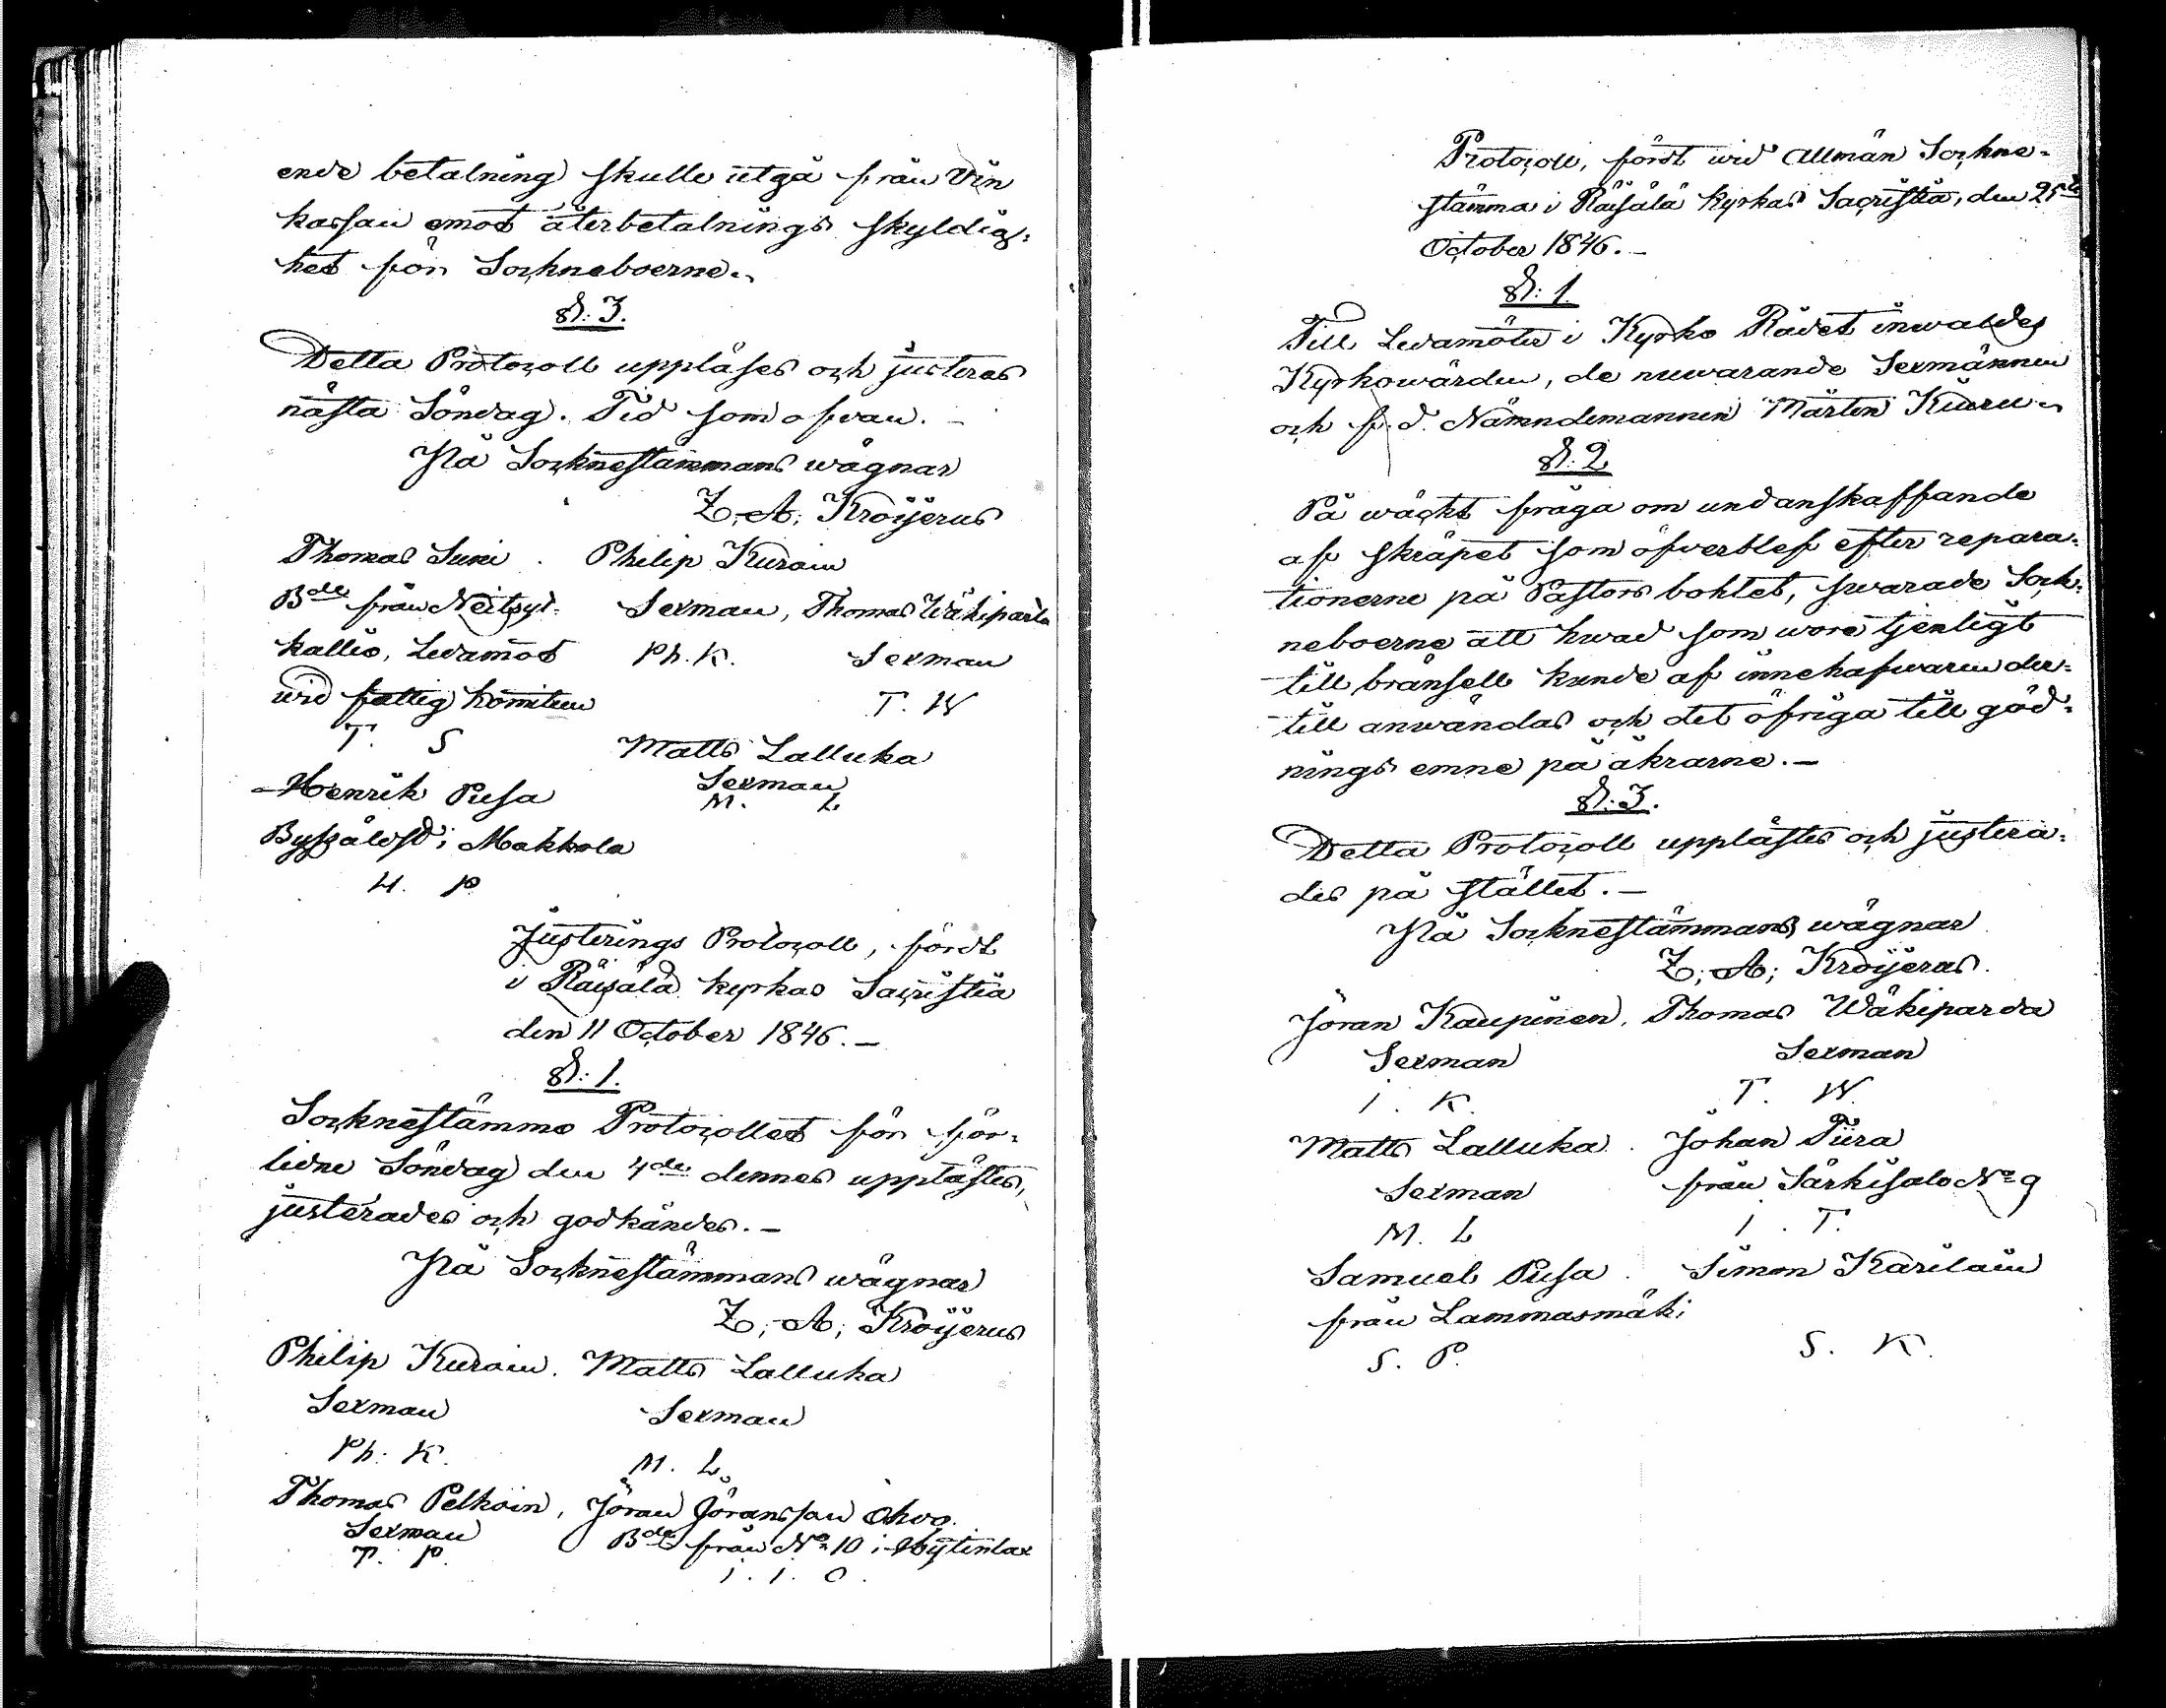 ende betalning skulle utgå från Vin
kassan emot återbetalnings skyldig=
het för Sockneboerne.
§: 3.
Detta Protocoll uppläses och justeras
nästa Söndag. Tid som ofvan. –
På Socknestämmans wägnar
Z; A; Kröijerus
Thomas Suni . Philip Kurain
Bde från Neitsyt= Sexman, Thomas Wäkiparta
kallio, Ledamot Ph. K. Sexman
wid fattig komiten T. W
T. S Matts Lalluka
Henrik Pusa Sexman
M. L
Byßåldfd: i Makkola
H. P
Justerings Protocoll, fördt
i Räisälä kyrkas Sacristia
den 11 October 1846. –
§: 1.
Socknestämmo Protocollet för för=
lidne Söndag den 4de dennes upplästes,
justerades och godkändes. –
På Socknestämmans wägnar
Z; A; Kröijerus
Philip Kurain. Matts Lalluka
Sexman Sexman
Ph. K. M. L
Thomas Pelkoin, Jöran Göransson Ohvo.
Sexman Bde från No 10 i Hytinlax
T. P. I. I. O.
Protocoll, fördt wid Allmän Sockne=
stämma i Räisälä Kyrkas Sacristia, den 25te
October 1846. –
§: 1.
Till Ledamöter i Kyrko Rådet inwaldes
Kyrkowärden, de nuwarande Sexmännen
och f. d. Nämndemannen Mårten Kuuru.
§: 2
På wäckt fråga om undanskaffande
af skräpet som öfverblef efter repara=
tionerne på Pastors bohlet, swarade Sock=
neboerne att hwad som wore tjenligt
till bränsell kunde af innehafwaren der=
till anwändas och det öfriga till göd=
nings emne på åkrarne. –
§: 3.
Detta Protocoll upplästes och justera=
des på stället. –
På Socknestämmans wägnar
Z; A; Kröijerus.
Jöran Kaupinen, Thomas Wäkiparda
Sexman Sexman
I. K. T. W.
Matts Lalluka . Johan Tiira
Sexman från Särkisalo No 9
M. L I. T.
Samuel Pusa . Simon Karilain
från Lammasmäki
S. P. S. K.